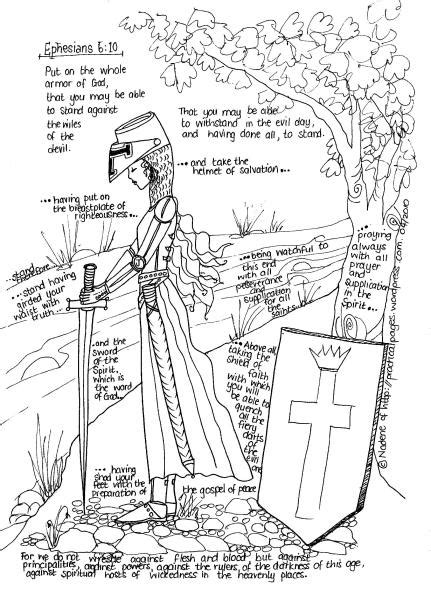 Ephesians 6:10
Put on the whole
armor of God,
that you may be able
to stand against
the wiles
of the
devil.
That you may be able
to withstand in the evil day,
and having done all, to stand.
... and take the
helmet of salvation...
... having put on
the breastplate of
righteousness...
stand
therefore
... stand having
girded your
waist with
truth...
... being watchful to
this end
with all
perseverance
and
supplication
for all
the saints
... praying
always
with all
prayer
and
supplication
in the
Spirit...
.. and the
sword
of the
Spirit,
which is
the word
of God...
... Above all
taking the
shield of
faith
with which
you will
be able to
quench
all the
fiery
darts
of the
evil one
... having
shod your
feet with the
preparation of
the gospel of peace
© Nadene of http://practicalpages.wordpress.com
For we do not wrestle against flesh and blood but against
principalities, against powers, against the rulers, of the darkness of this age,
against spiritual hosts of wickedness in the heavenly places.